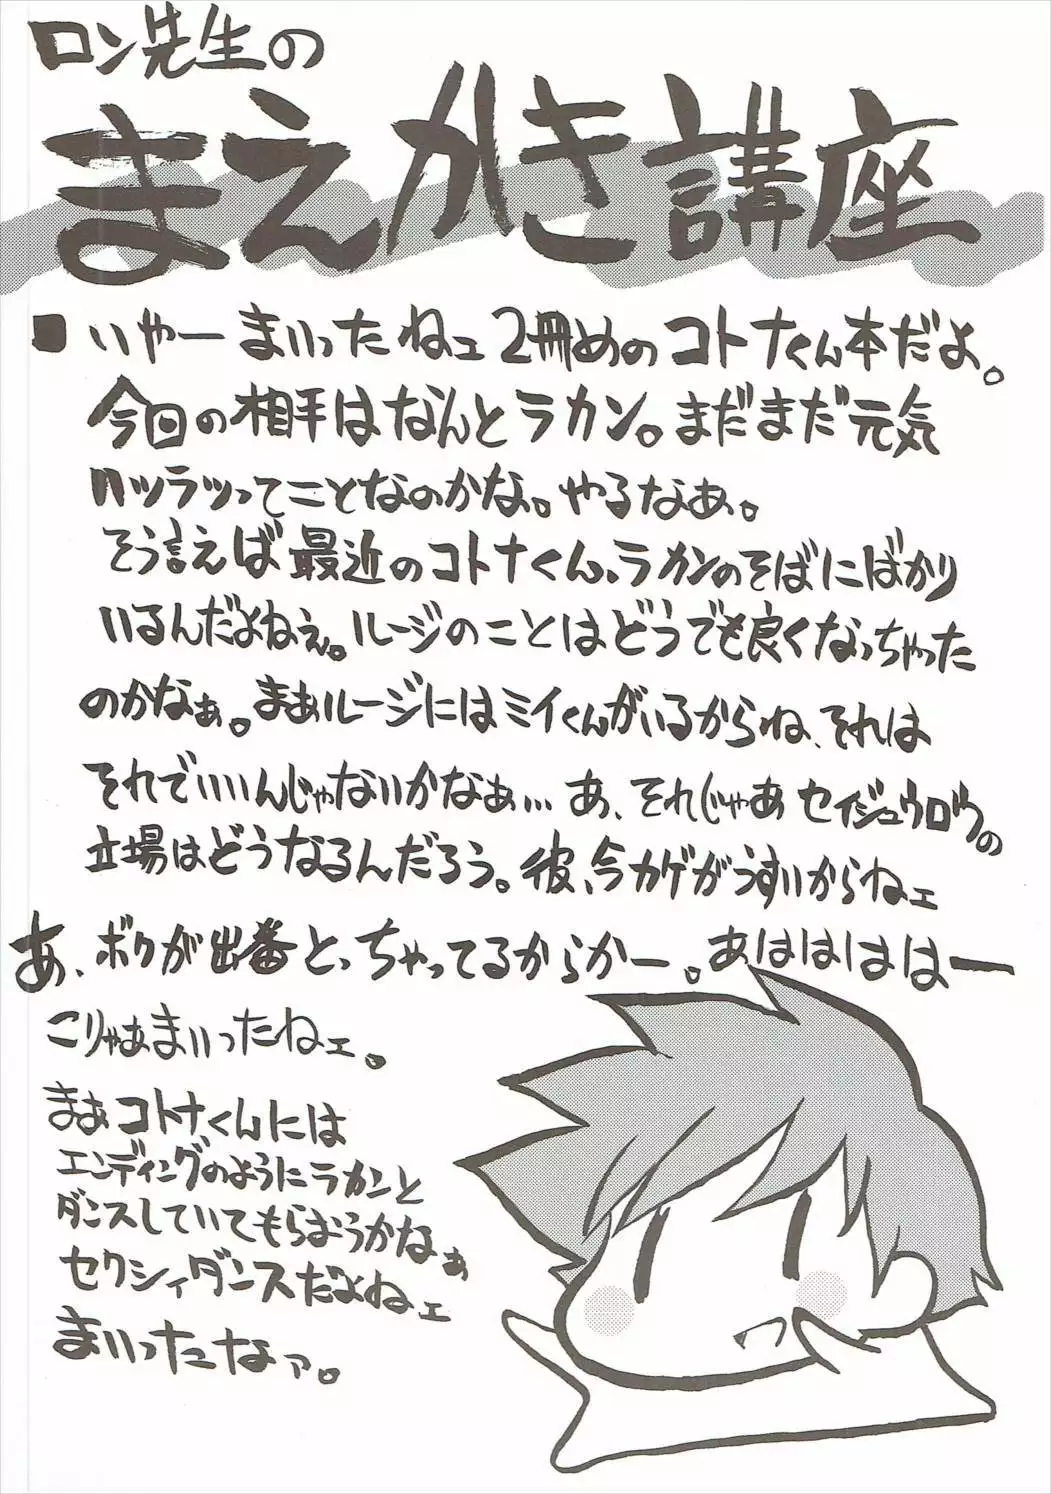 ロン先生の
まえかき講座
■いやーまいったねェ2冊めのコトナくん本だよ。
今回の相手はなんとラカン。まだまだ元気
ハツラツってことなのかな。やるなあ。
そう言えば最近のコトナくん、ラカンのそばにばかり
いるんだよねぇ。ルージのことはどうでも良くなっちゃった
のかなぁ。まぁルージにはミイくんがいるからね、それは
それでいいんじゃないかなぁ…あ、それじゃあセイジュウロウの
立場はどうなるんだろう。彼、今カゲがうすいからねェ
あ、ボクが出番とっちゃってるからかー。あはははは―
こりゃあまいったねェ。
まぁコトナくんには
エンディングのようにラカンと
ダンスしていてもらおうかなぁ
セクシィダンスだよねェ
まいったなァ。